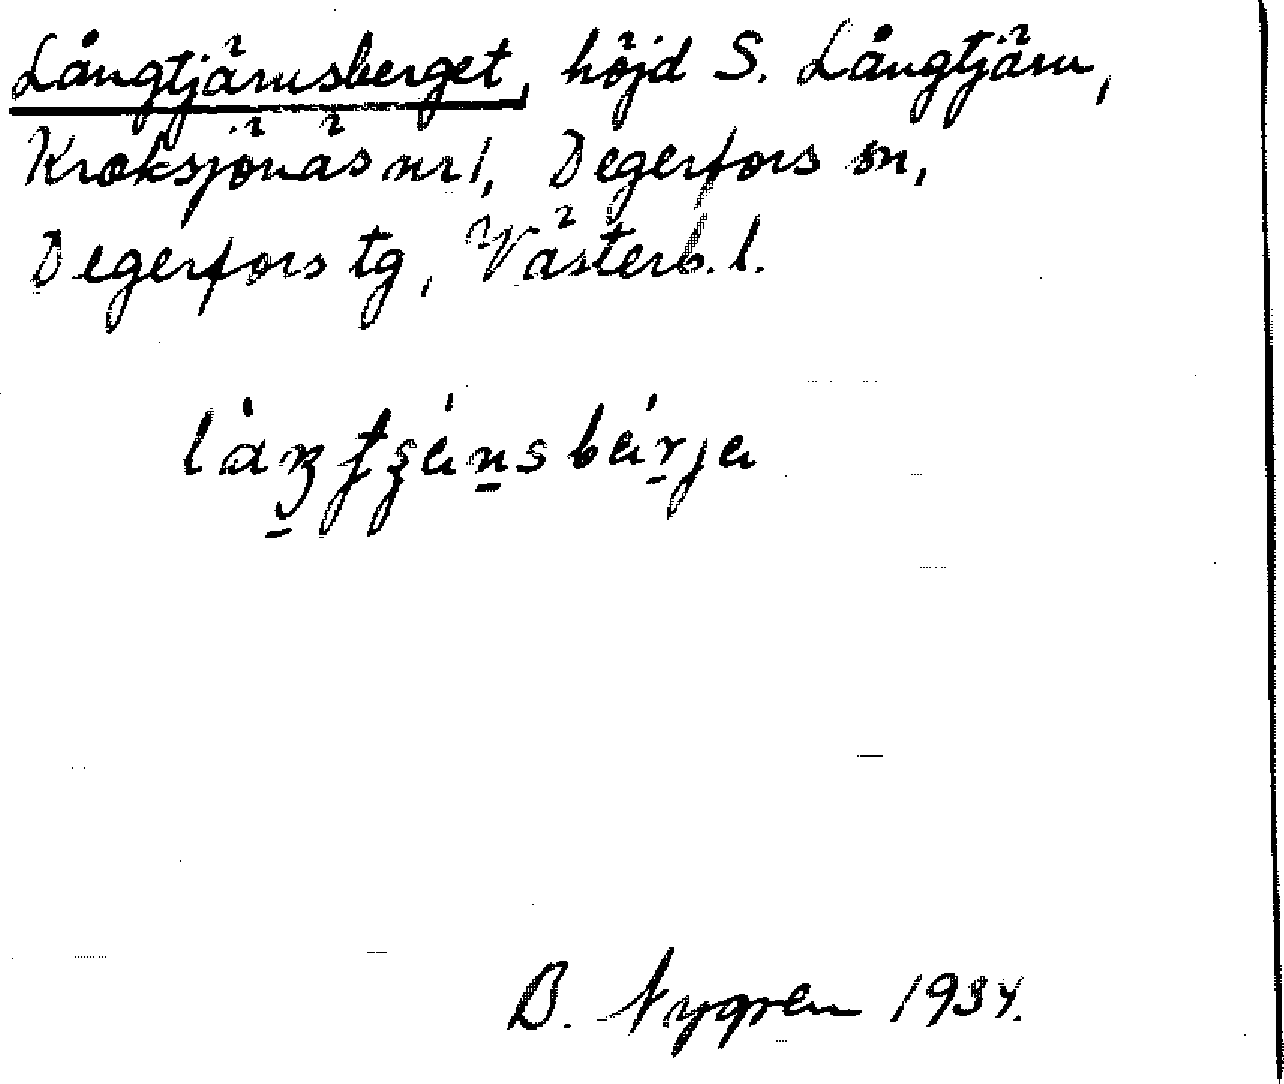 Långtjärnsberget, höjd S. Långtjärn,
Kroksjönäs nr 1, Degerfors sn,
Degerfors tg, Västerb. l.
B. Nygren 1934.